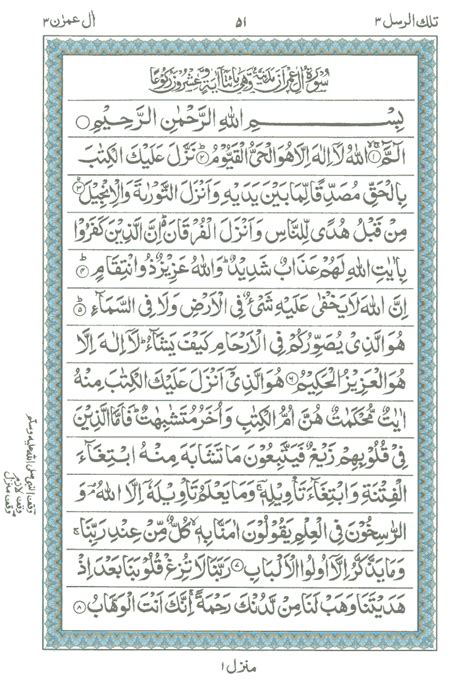 تلك الرسل ٣
٥١
اٰل عمرٰن ٣
سُوْرَةُ اٰلِ عِمْرٰنَ مَدَنِيَّةٌ وَّهِيَ مِائَتَا اٰيَةٍ وَّعِشْرُوْنَ رُكُوْعًا
بِسْمِ اللهِ الرَّحْمٰنِ الرَّحِيْمِ
الٓمّٓ ۱ اللهُ لَاۤ اِلٰهَ اِلَّا هُوَ الْحَيُّ الْقَيُّوْمُ ۲ نَزَّلَ عَلَيْكَ الْكِتٰبَ
بِالْحَقِّ مُصَدِّقًا لِّمَا بَيْنَ يَدَيْهِ وَاَنْزَلَ التَّوْرٰىةَ وَالْاِنْجِيْلَ ۳
مِنْ قَبْلُ هُدًى لِّلنَّاسِ وَاَنْزَلَ الْفُرْقَانَ ؕ اِنَّ الَّذِيْنَ كَفَرُوْا
بِاٰيٰتِ اللهِ لَهُمْ عَذَابٌ شَدِيْدٌ ؕ وَاللهُ عَزِيْزٌ ذُو انْتِقَامٍ ۴
اِنَّ اللهَ لَا يَخْفٰى عَلَيْهِ شَيْءٌ فِي الْاَرْضِ وَلَا فِي السَّمَآءِ ۵
هُوَ الَّذِيْ يُصَوِّرُكُمْ فِي الْاَرْحَامِ كَيْفَ يَشَآءُ ؕ لَاۤ اِلٰهَ اِلَّا
هُوَ الْعَزِيْزُ الْحَكِيْمُ ۶ هُوَ الَّذِيْۤ اَنْزَلَ عَلَيْكَ الْكِتٰبَ مِنْهُ
اٰيٰتٌ مُّحْكَمٰتٌ هُنَّ اُمُّ الْكِتٰبِ وَاُخَرُ مُتَشٰبِهٰتٌ ؕ فَاَمَّا الَّذِيْنَ
فِيْ قُلُوْبِهِمْ زَيْغٌ فَيَتَّبِعُوْنَ مَا تَشَابَهَ مِنْهُ ابْتِغَآءَ
الْفِتْنَةِ وَابْتِغَآءَ تَاْوِيْلِهٖ ۚ وَمَا يَعْلَمُ تَاْوِيْلَهٗۤ اِلَّا اللهُ ۘ وَ
الرّٰسِخُوْنَ فِي الْعِلْمِ يَقُوْلُوْنَ اٰمَنَّا بِهٖ ۙ كُلٌّ مِّنْ عِنْدِ رَبِّنَا ۚ
وَمَا يَذَّكَّرُ اِلَّاۤ اُولُوا الْاَلْبَابِ ۷ رَبَّنَا لَا تُزِغْ قُلُوْبَنَا بَعْدَ اِذْ
هَدَيْتَنَا وَهَبْ لَنَا مِنْ لَّدُنْكَ رَحْمَةً ۚ اِنَّكَ اَنْتَ الْوَهَّابُ ۸
وقف النبي صلى الله عليه وسلم
وقف لازم
وقف منزل
منزل ۱